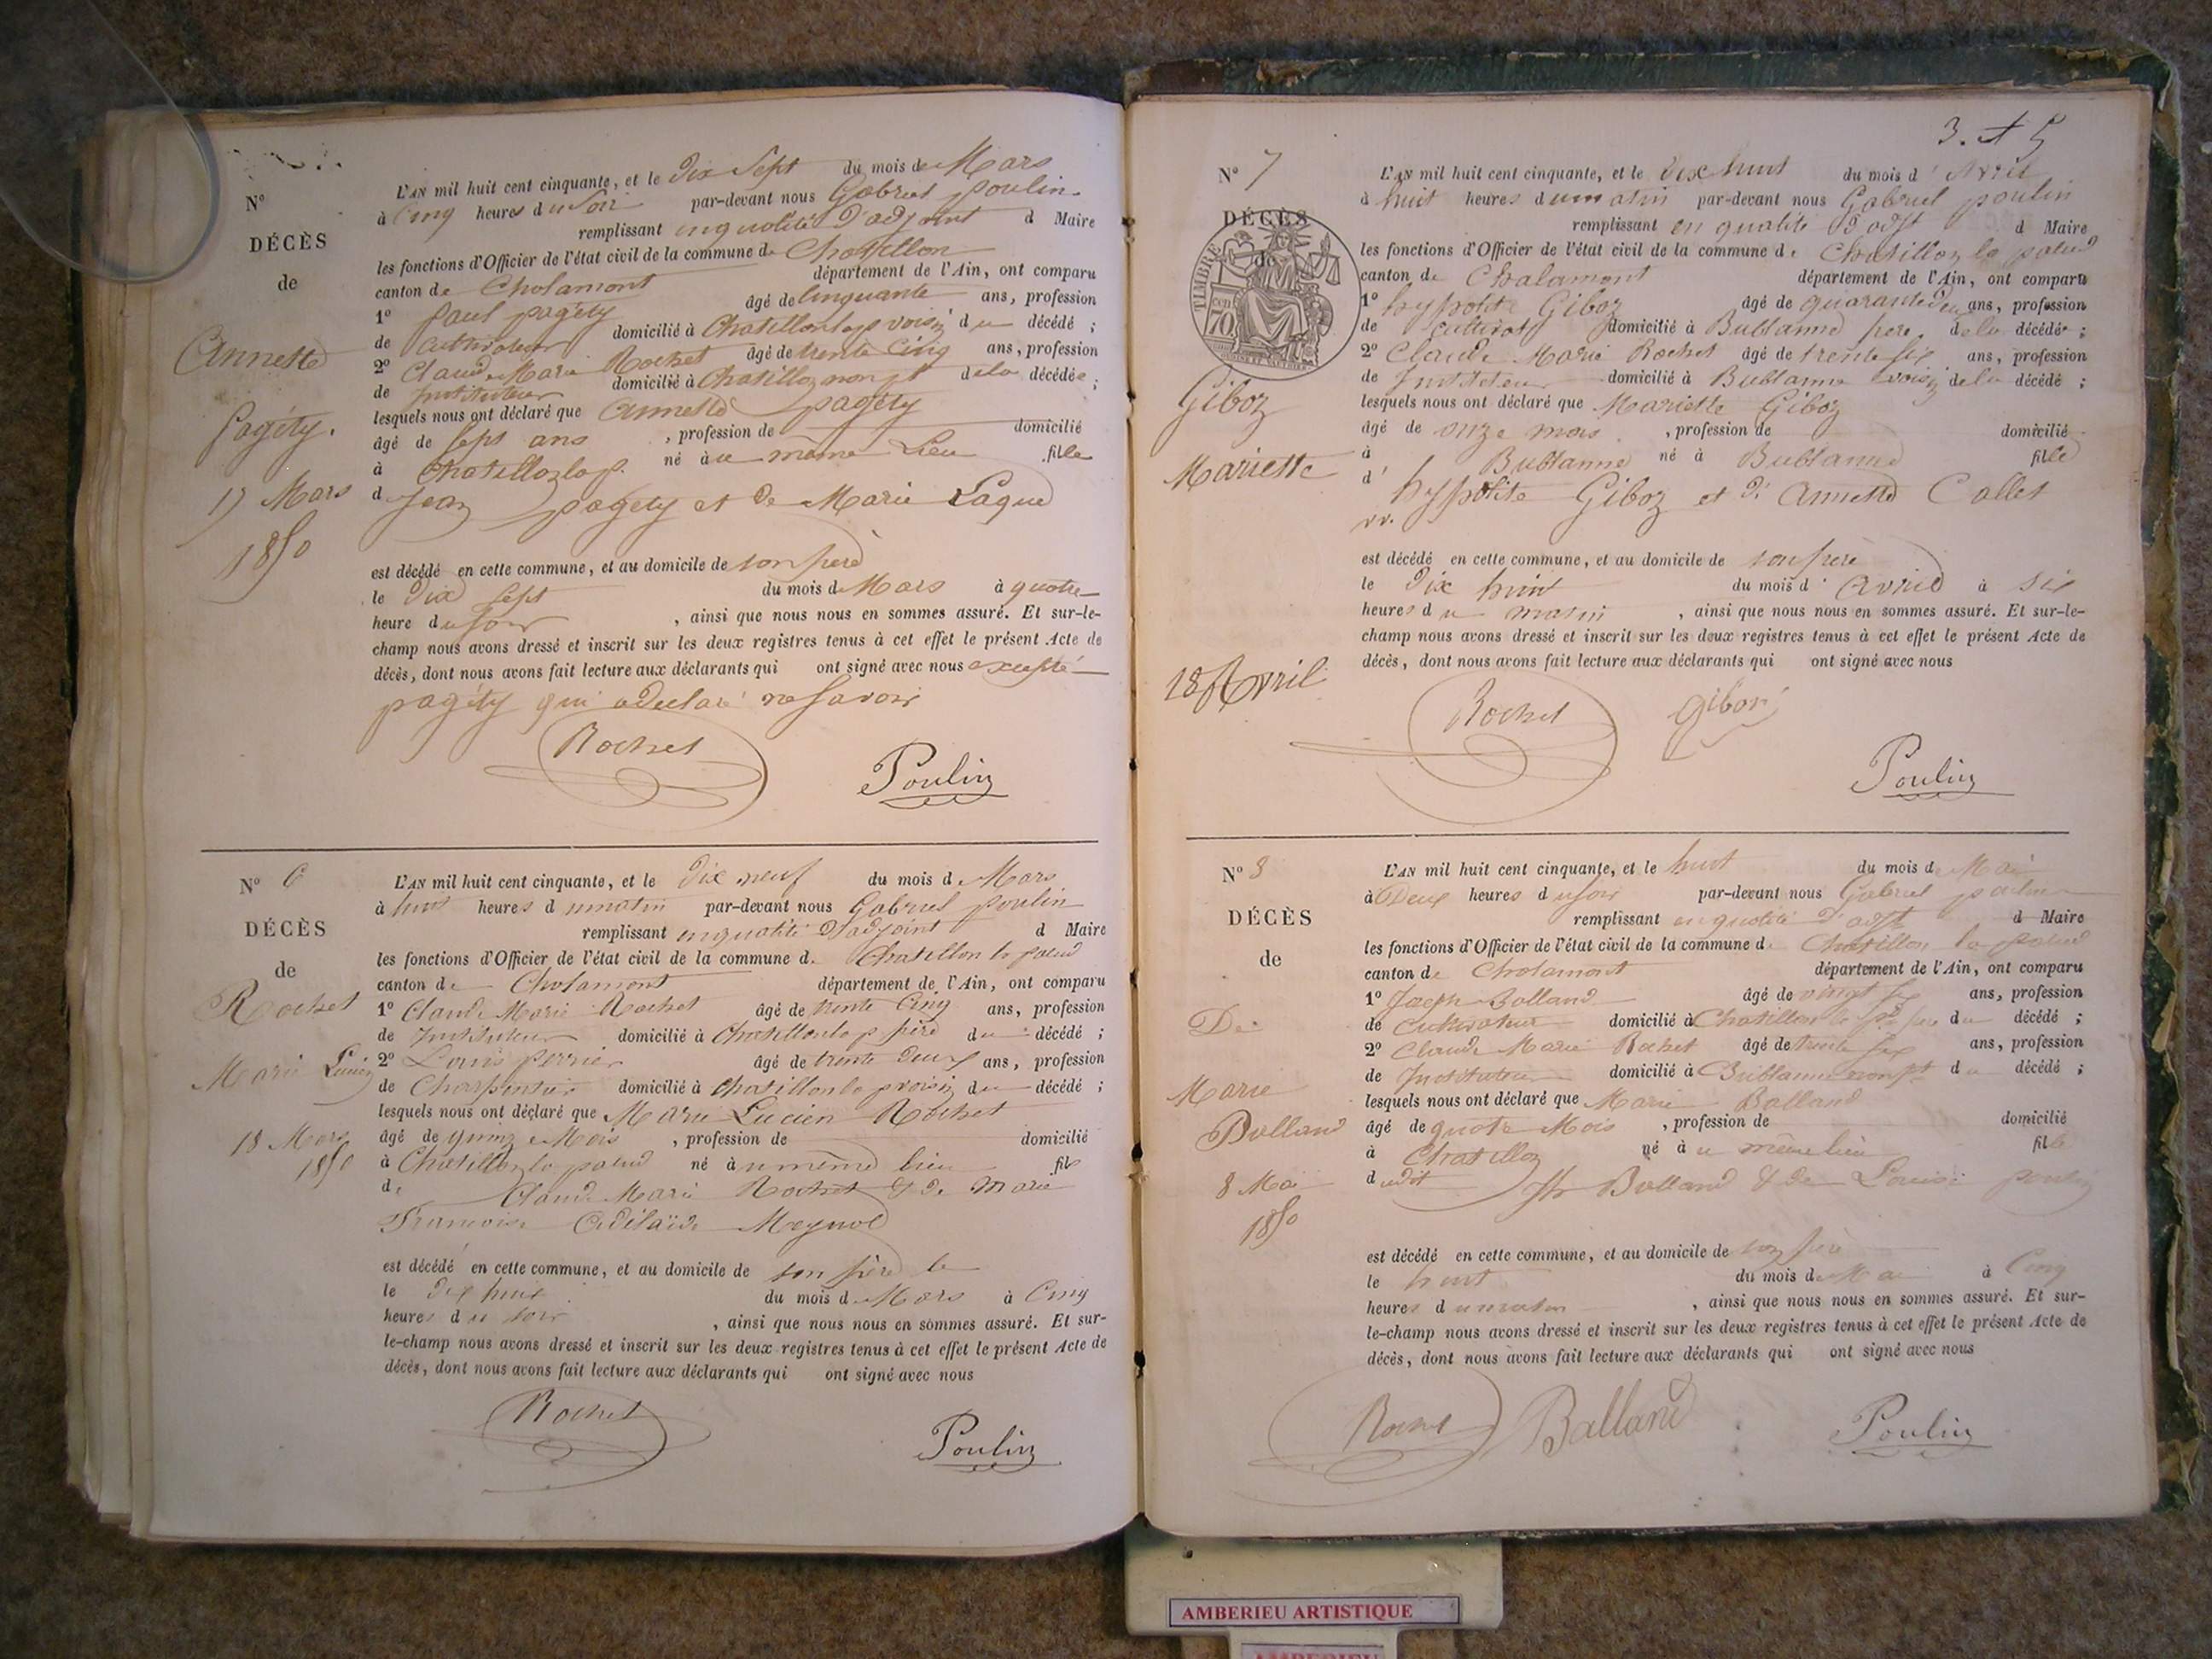 N°
DÉCÈS
de
Annette
Pagéty.
17 Mars
1850
L'AN mil huit cent cinquante, et le dix Sept du mois de Mars
à Cinq heures du Soir par-devant nous Gabriel poulin
remplissant en qualité d'adjoint d Maire
les fonctions d'Officier de l'état civil de la commune de Chatillon
canton de Chalamont département de l'Ain, ont comparu
1° Paul pagéty âgé de Cinquante ans, profession
de Cultivateur domicilié à Chatillon la p voisin du décédé ;
2° Claude Marie Rochet âgé de trente Cinq ans, profession
de Instituteur domicilié à Chatillon non pt de la décédée ;
lesquels nous ont déclaré que Annette pagéty
âgé de Sept ans , profession de domicilié
à Chatillon la p. né à u même Lieu fille
d Jean pagéty et de Marie Laque
est décédé en cette commune, et au domicile de son père
le Dix Sept du mois de Mars à quatre
heure du Soir , ainsi que nous nous en sommes assuré. Et sur-le-
champ nous avons dressé et inscrit sur les deux registres tenus à cet effet le présent Acte de
décès, dont nous avons fait lecture aux déclarants qui ont signé avec nous excepté
pagéty qui a déclaré ne Savoir
Rochet
Poulin
N° 6
DÉCÈS
de
Rochet
Marie Lucien
18 Mars
1850
L'AN mil huit cent cinquante, et le dix neuf du mois d Mars
à huit heures d u matin par-devant nous Gabriel poulin
remplissant en qualité d'adjoint d Maire
les fonctions d'Officier de l'état civil de la commune d. Chatillon la palud
canton de Chalamont département de l'Ain, ont comparu
1° Claude Marie Rochet âgé de trente Cinq ans, profession
de Instituteur domicilié à Chatillon la p père du décédé ;
2° Louis perrier âgé de trente deux ans, profession
de Charpentier domicilié à Chatillon la p voisin du décédé ;
lesquels nous ont déclaré que Marie Lucien Rochet
âgé de quinze Mois , profession de domicilié
à Chatillon la palud né à u même lieu fils
de Claude Marie Rochet & de Marie
Francoise Adélaïde Meynod
est décédé en cette commune, et au domicile de son père le
le dix huit du mois d Mars à Cinq
heures du soir , ainsi que nous nous en sommes assuré. Et sur-
le-champ nous avons dressé et inscrit sur les deux registres tenus à cet effet le présent Acte de
décès, dont nous avons fait lecture aux déclarants qui ont signé avec nous
Rochet
Poulin
N° 7
DÉCÈS
TIMBRE
cen
70
Giboz
Mariette
18 Avril
L'AN mil huit cent cinquante, et le dix huit du mois d' Avril
à huit heures du matin par-devant nous Gabriel poulin
remplissant en qualité d'adjt d Maire
les fonctions d'Officier de l'état civil de la commune de Chatillon la palud
canton de Chalamont département de l'Ain, ont comparu
1° hyppolite Giboz âgé de quarante deux ans, profession
de Cultivat domicilié à Bublanne père de la décédée ;
2° Claude Marie Rochet âgé de trente Six ans, profession
de Instituteur domicilié à Bublanne voisin de la décédé ;
lesquels nous ont déclaré que Mariette Giboz
âgé de onze mois , profession de domicilié
à Bublanne né à Bublanne fille
d' hyppolite Giboz et d' Annette Collet
est décédé en cette commune, et au domicile de son père
le dix huit du mois d' avril à Six
heures du matin , ainsi que nous nous en sommes assuré. Et sur-le-
champ nous avons dressé et inscrit sur les deux registres tenus à cet effet le présent Acte de
décès, dont nous avons fait lecture aux déclarants qui ont signé avec nous
Rochet
Poulin
N° 8
DÉCÈS
de
De
Marie
Bolland
8 Mai
1850
L'AN mil huit cent cinquante, et le huit du mois d Mai
à Deux heures du Soir par-devant nous Gabriel poulin
remplissant en qualité d'adjt d Maire
les fonctions d'Officier de l'état civil de la commune d. Chatillon la palud
canton de Chalamont département de l'Ain, ont comparu
1° Joseph Bolland âgé de vingt six ans, profession
de Cultivateur domicilié à Chatillon la p père du décédé ;
2° Claude Marie Rochet âgé de trente six ans, profession
de Instituteur domicilié à Bublanne non pt du décédé ;
lesquels nous ont déclaré que Marie Bolland
âgé de quatre Mois , profession de domicilié
à Chatillon né à u même lieu fille
dudit Jh Bolland & de Louise poulin
est décédé en cette commune, et au domicile de son père
le huit du mois de Mai à Cinq
heures d u matin , ainsi que nous nous en sommes assuré. Et sur-
le-champ nous avons dressé et inscrit sur les deux registres tenus à cet effet le présent Acte de
décès, dont nous avons fait lecture aux déclarants qui ont signé avec nous
Rochet Balland Poulin
AMBERIEU ARTISTIQUE
AMBERIEU